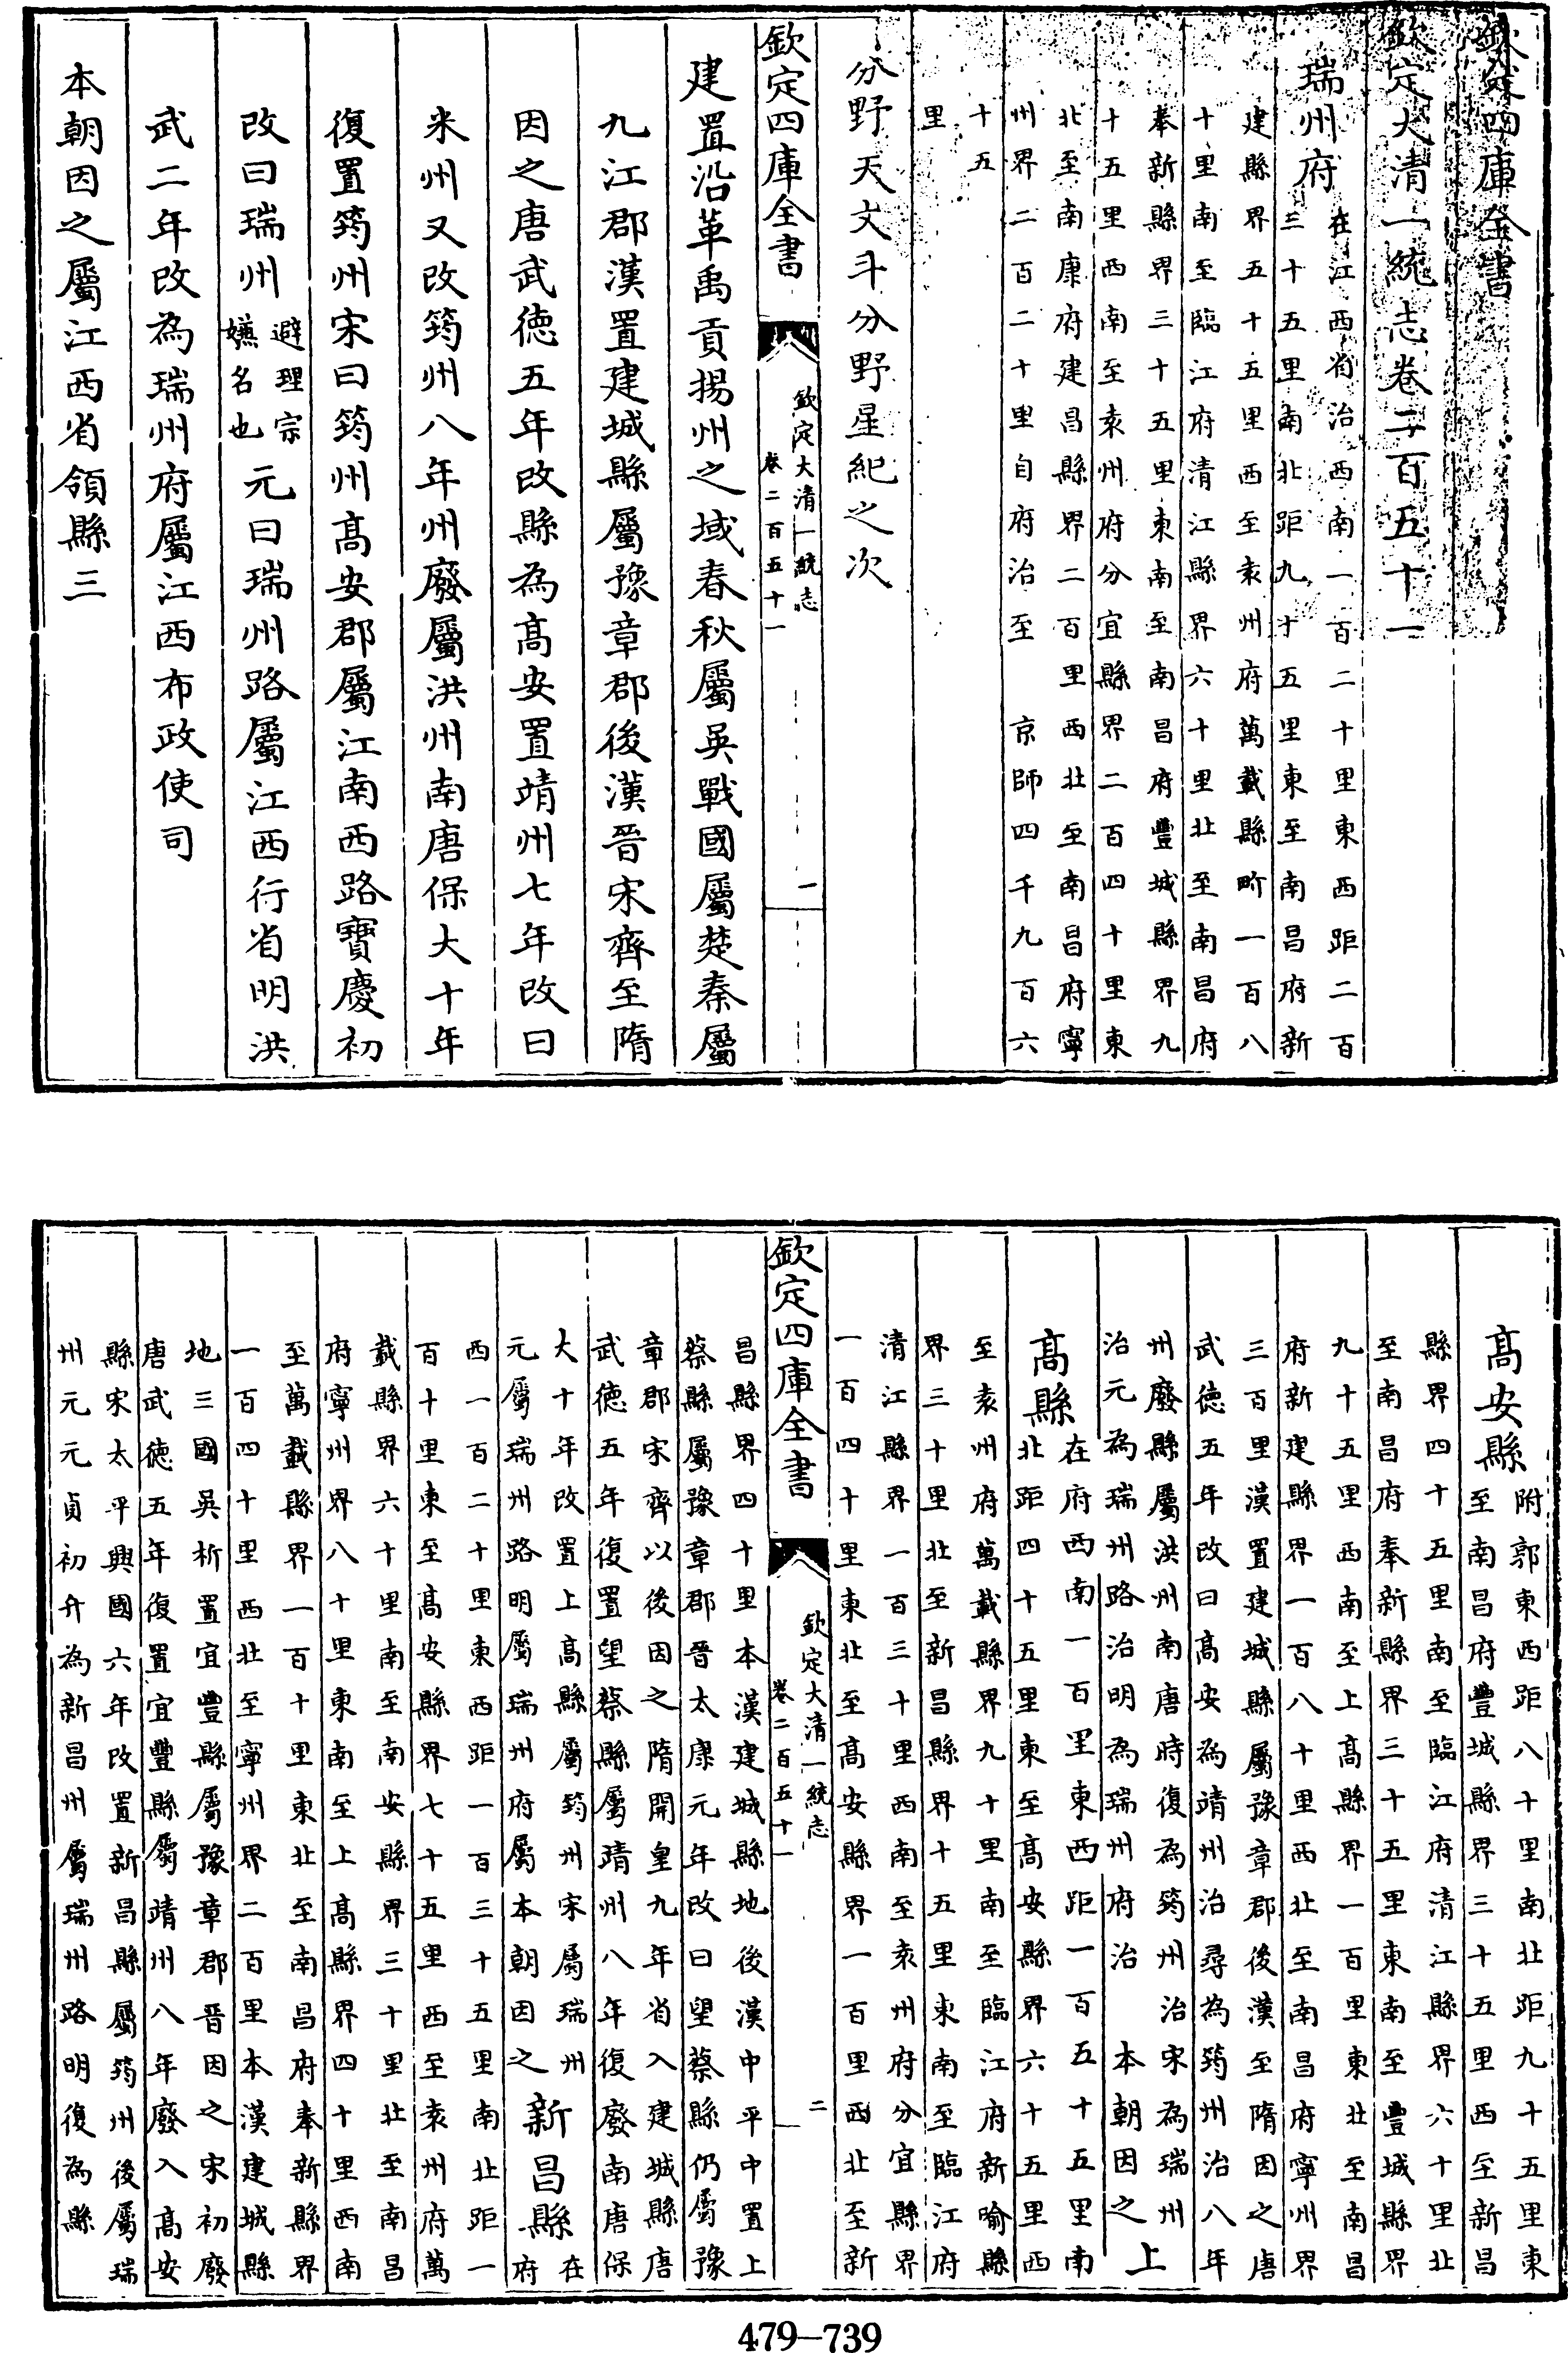 欽定四庫全書
欽定大清一統志卷二百五十一
瑞州府
在江西省治西南一百二十里東西距二百
三十五里南北距九十五里東至南昌府新
建縣界五十五里西至袁州府萬載縣界一百八
十里南至臨江府清江縣界六十里北至南昌府
奉新縣界三十五里東南至南昌府豐城縣界九
十五里西南至袁州府分宜縣界二百四十里東
北至南康府建昌縣界二百里西北至南昌府寧
州界二百二十里自府治至 京師四千九百六
十五
里
分野天文斗分野星紀之次
欽定四庫全書
欽定大清一統志
卷二百五十一
一
建置沿革禹貢揚州之域春秋屬吳戰國屬楚秦屬
九江郡漢置建城縣屬豫章郡後漢晉宋齊至隋
因之唐武德五年改縣為高安置靖州七年改曰
米州又改筠州八年州廢屬洪州南唐保大十年
復置筠州宋曰筠州高安郡屬江南西路寶慶初
改曰瑞州避理宗嫌名也元曰瑞州路屬江西行省明洪
武二年改為瑞州府屬江西布政使司
本朝因之屬江西省領縣三
高安縣
附郭東西距八十里南北距九十五里東
至南昌府豐城縣界三十五里西至新昌
縣界四十五里南至臨江府清江縣界六十里北
至南昌府奉新縣界三十五里東南至豐城縣界
九十五里西南至上高縣界一百里東北至南昌
府新建縣界一百八十里西北至南昌府寧州界
三百里漢置建城縣屬豫章郡後漢至隋因之唐
武德五年改曰高安為靖州治尋為筠州治八年
州廢縣屬洪州南唐時復為筠州治宋為瑞州
治元為瑞州路治明為瑞州府治 本朝因之
上
高縣
在府西南一百里東西距一百五十五里南
北距四十五里東至高安縣界六十五里西
至袁州府萬載縣界九十里南至臨江府新喻縣
界三十里北至新昌縣界十五里東南至臨江府
清江縣界一百三十里西南至袁州府分宜縣界
一百四十里東北至高安縣界一百里西北至新
欽定四庫全書
欽定大清一統志
卷二百五十一
二
昌縣界四十里本漢建城縣地後漢中平中置上
蔡縣屬豫章郡晉太康元年改曰望蔡縣仍屬豫
章郡宋齊以後因之隋開皇九年省入建城縣唐
武德五年復置望蔡縣屬靖州八年復廢南唐保
大十年改置上高縣屬筠州宋屬瑞州
元屬瑞州路明屬瑞州府屬本朝因之
新昌縣
在
府
西一百二十里東西距一百三十五里南北距一
百十里東至高安縣界七十五里西至袁州府萬
載縣界六十里南至南安縣界三十里北至南昌
府寧州界八十里東南至上高縣界四十里西南
至萬載縣界一百十里東北至南昌府奉新縣界
一百四十里西北至寧州界二百里本漢建城縣
地三國吳析置宜豐縣屬豫章郡晉因之宋初廢
唐武德五年復置宜豐縣屬靖州八年廢入高安
縣宋太平興國六年改置新昌縣屬筠州後屬瑞
州元元貞初升為新昌州屬瑞州路明復為縣
479—739